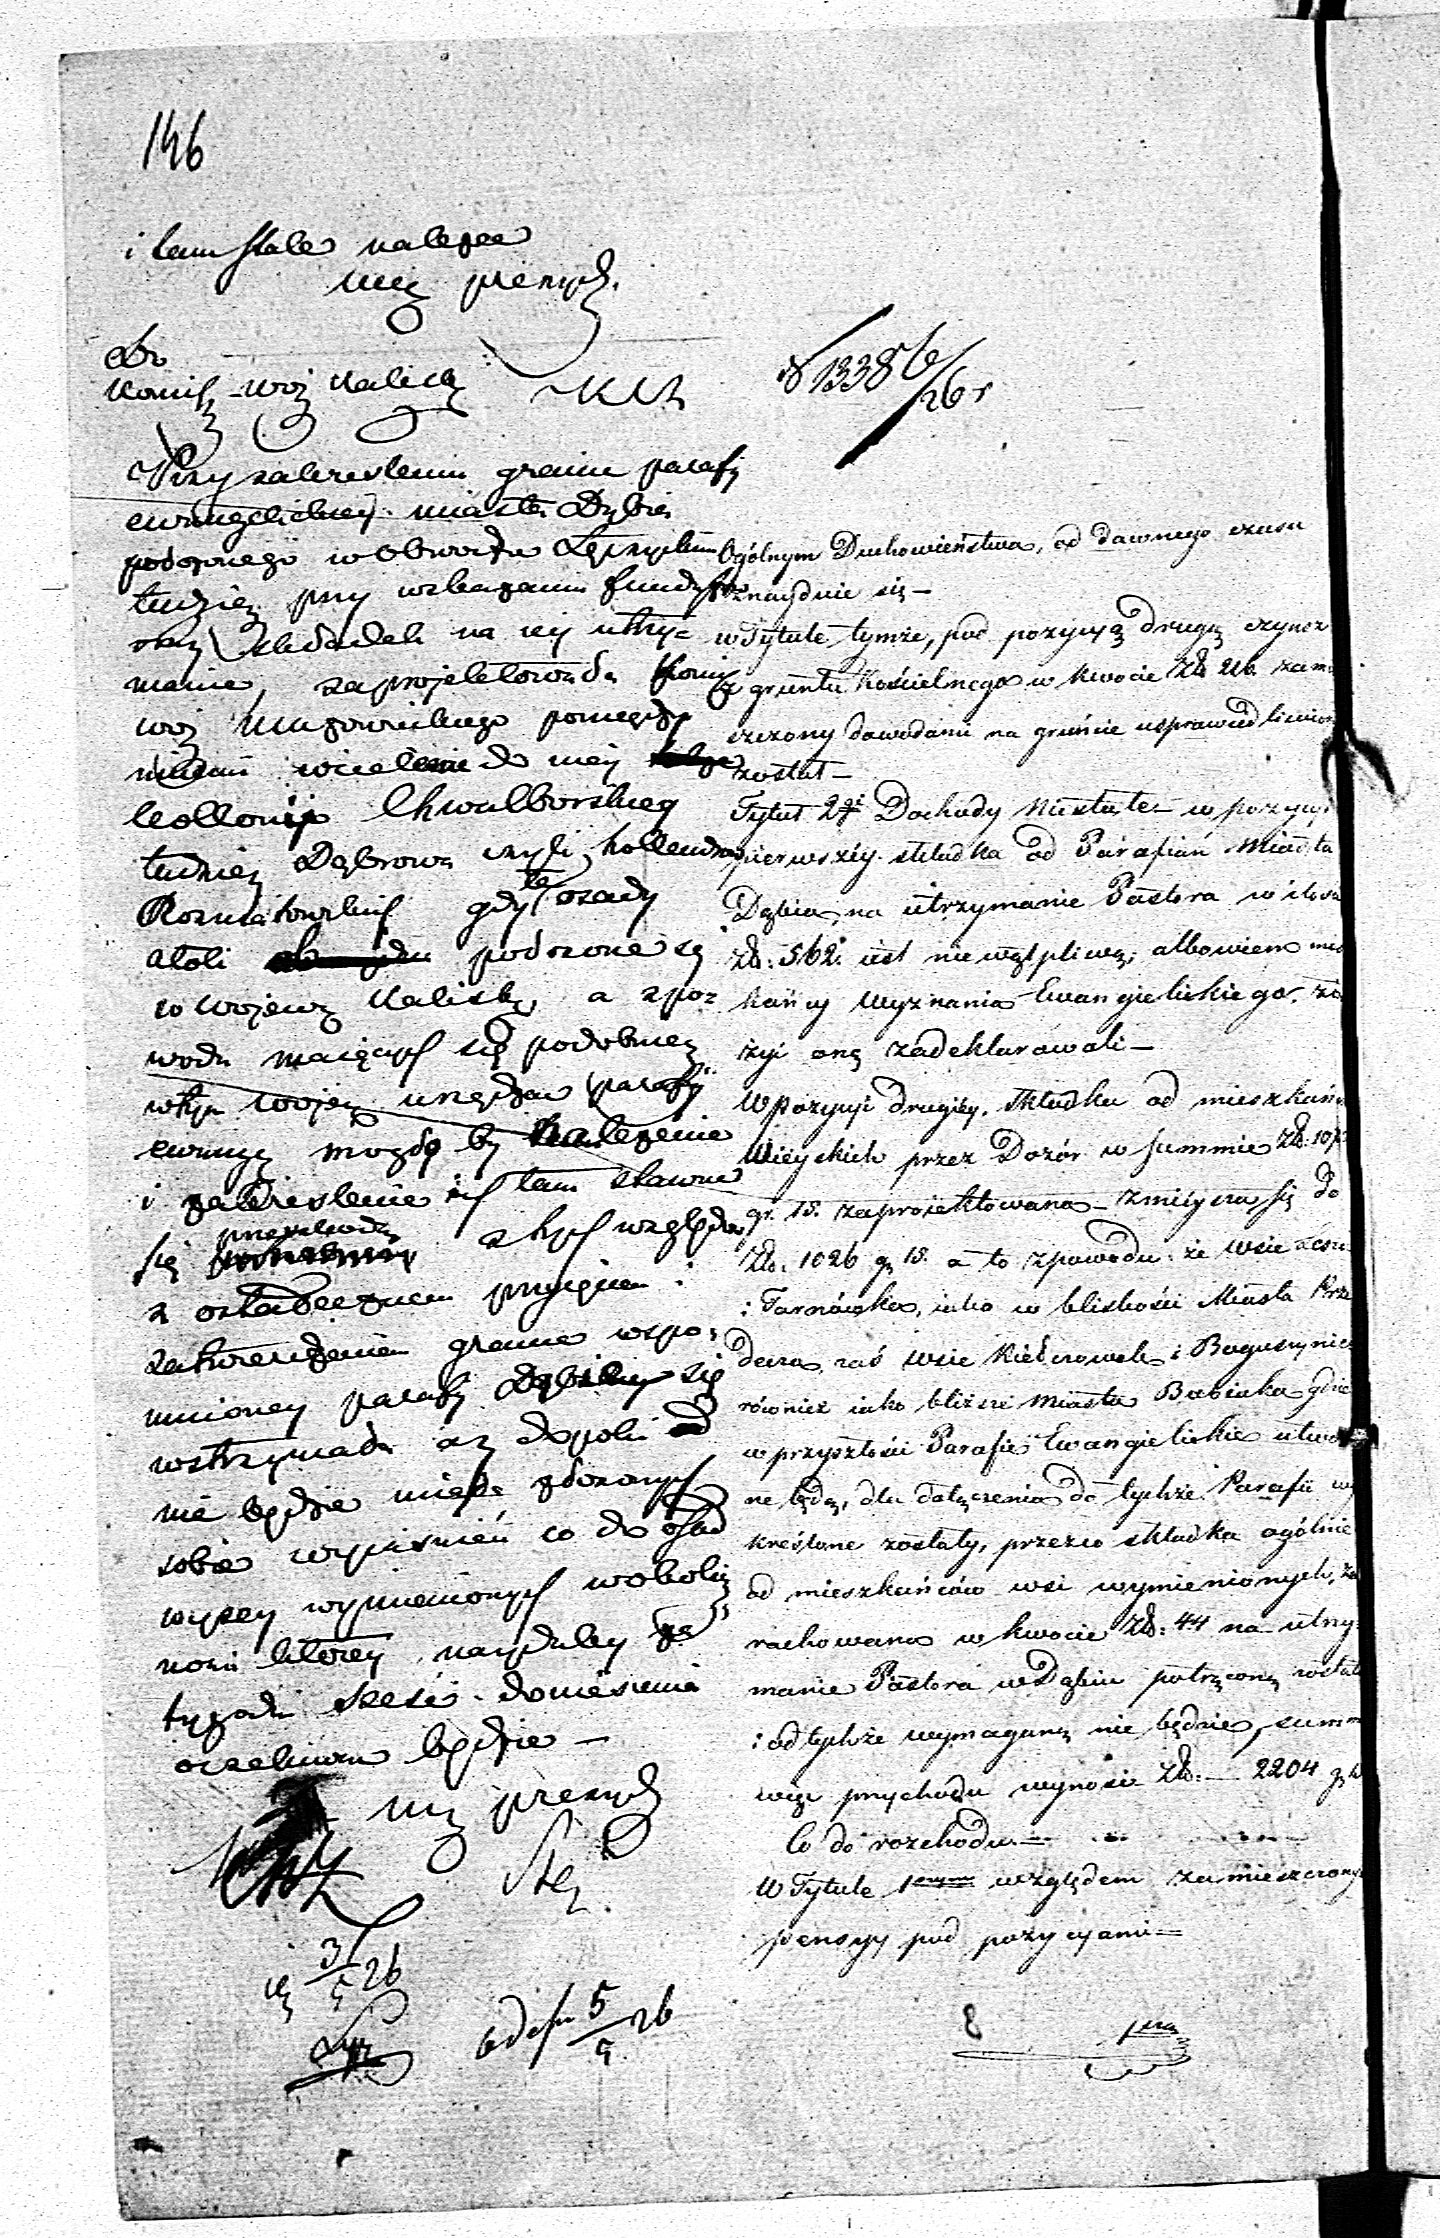 146
i tam stale należeć
mają
Do
Komiss. Woj. Kalisk.
N 13386/26 r
Przy zakreśleniu granic parafij
ewangelickiey miasta Dąbia
położonego w Obwodzie Łęczyckim
tudzież przy wskazaniu funduszu
oraz składek na iey utrzy-
manie, zaprojektowała Komis.
woj. Mazowieckiego pomiędzy
innemi wcielenie do niey
kollonij Chwalborskiey
tudzież Dąbrowa czyli hollendry
gdy te osady
atoli położone są
w Wojew. Kalisk., a z po-
wodu maiących się podobnież
w tym wojew. urządzać parafij
ewang. mogło by należenie
i zakreślenie ich tam stawać
się przeszkodą z tych względów
z ostatecznem przyięciem i
zatwierdzeniem granic wspo-
mnioney parafij Dąbskiey się
wstrzymała aż dopóki
nie będzie miała złożonych
sobie wyjaśnień co do osad
wyżey wymienionych w okolicz-
ności którey naydaley za
tygodni sześć doniesienia
oczekiwać będzie —
3/5 26
5/5 26
Ogólnym Duchowieństwa, od dawnego czasu
znayduie się —
w Tytule tymże, pod pozycyą drugą czynsz
z gruntu Kościelnego w kwocie Zł. 26. zamie-
szczony dowodami na gruncie usprawiedliwiony
został —
Tytuł 2gi Dochody Niestałe — w pozycyi
pierwszéy składka od Parafian Miasta
Dąbia, na utrzymanie Pastora w ilości
Zł. 562. iest niewątpliwą, albowiem miesz-
kańcy wyznania Ewangielickiego,
żyć onę zadeklarowali —
W pozycyi drugiéy, składka od mieszkańców
Wieyskich przez Dozór w summie Zł. 1070
gr. 18. zaproiektowana — zmieysza się do
Zł. 1026 gr. 18. a to z powodu że wsie
i Tarnówka, iako w bliskości Miasta
decza, zaś wsie Kiełczewek i Boguszyniec
również iako bliższe Miasta Babiaka gdzie
w przyszłości Parafie Ewangielickie utworzo-
ne będą, dla dołączenia do tychże Parafii wy-
kreślone zostały, przezco składka ogólnie
od mieszkańców wsi wymienionych, za-
rachowana w kwocie Zł. 44 na utrzy-
manie Pastora w Dąbiu potrąconą została
i od tychże wymaganą nie będzie, summa
więc przychodu wynosi Zł. — 2204 gr.
Co do rozchodu —
W Tytule 1wszym względem zamieszczonych
pensyy pod pozycyami —